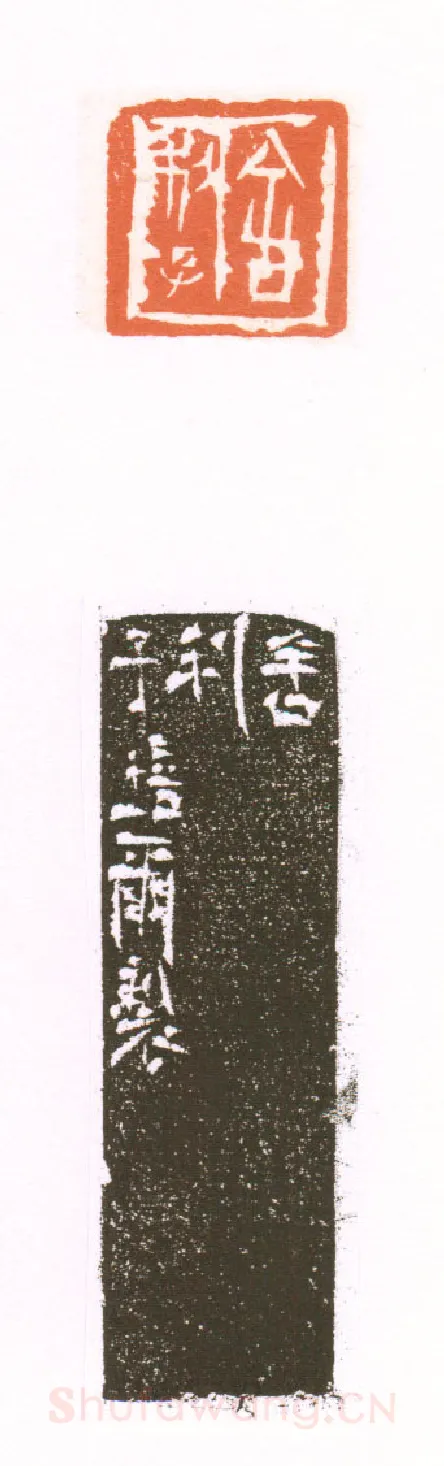 舍
利子
舍
利
子
爾製
Shufawang.CN